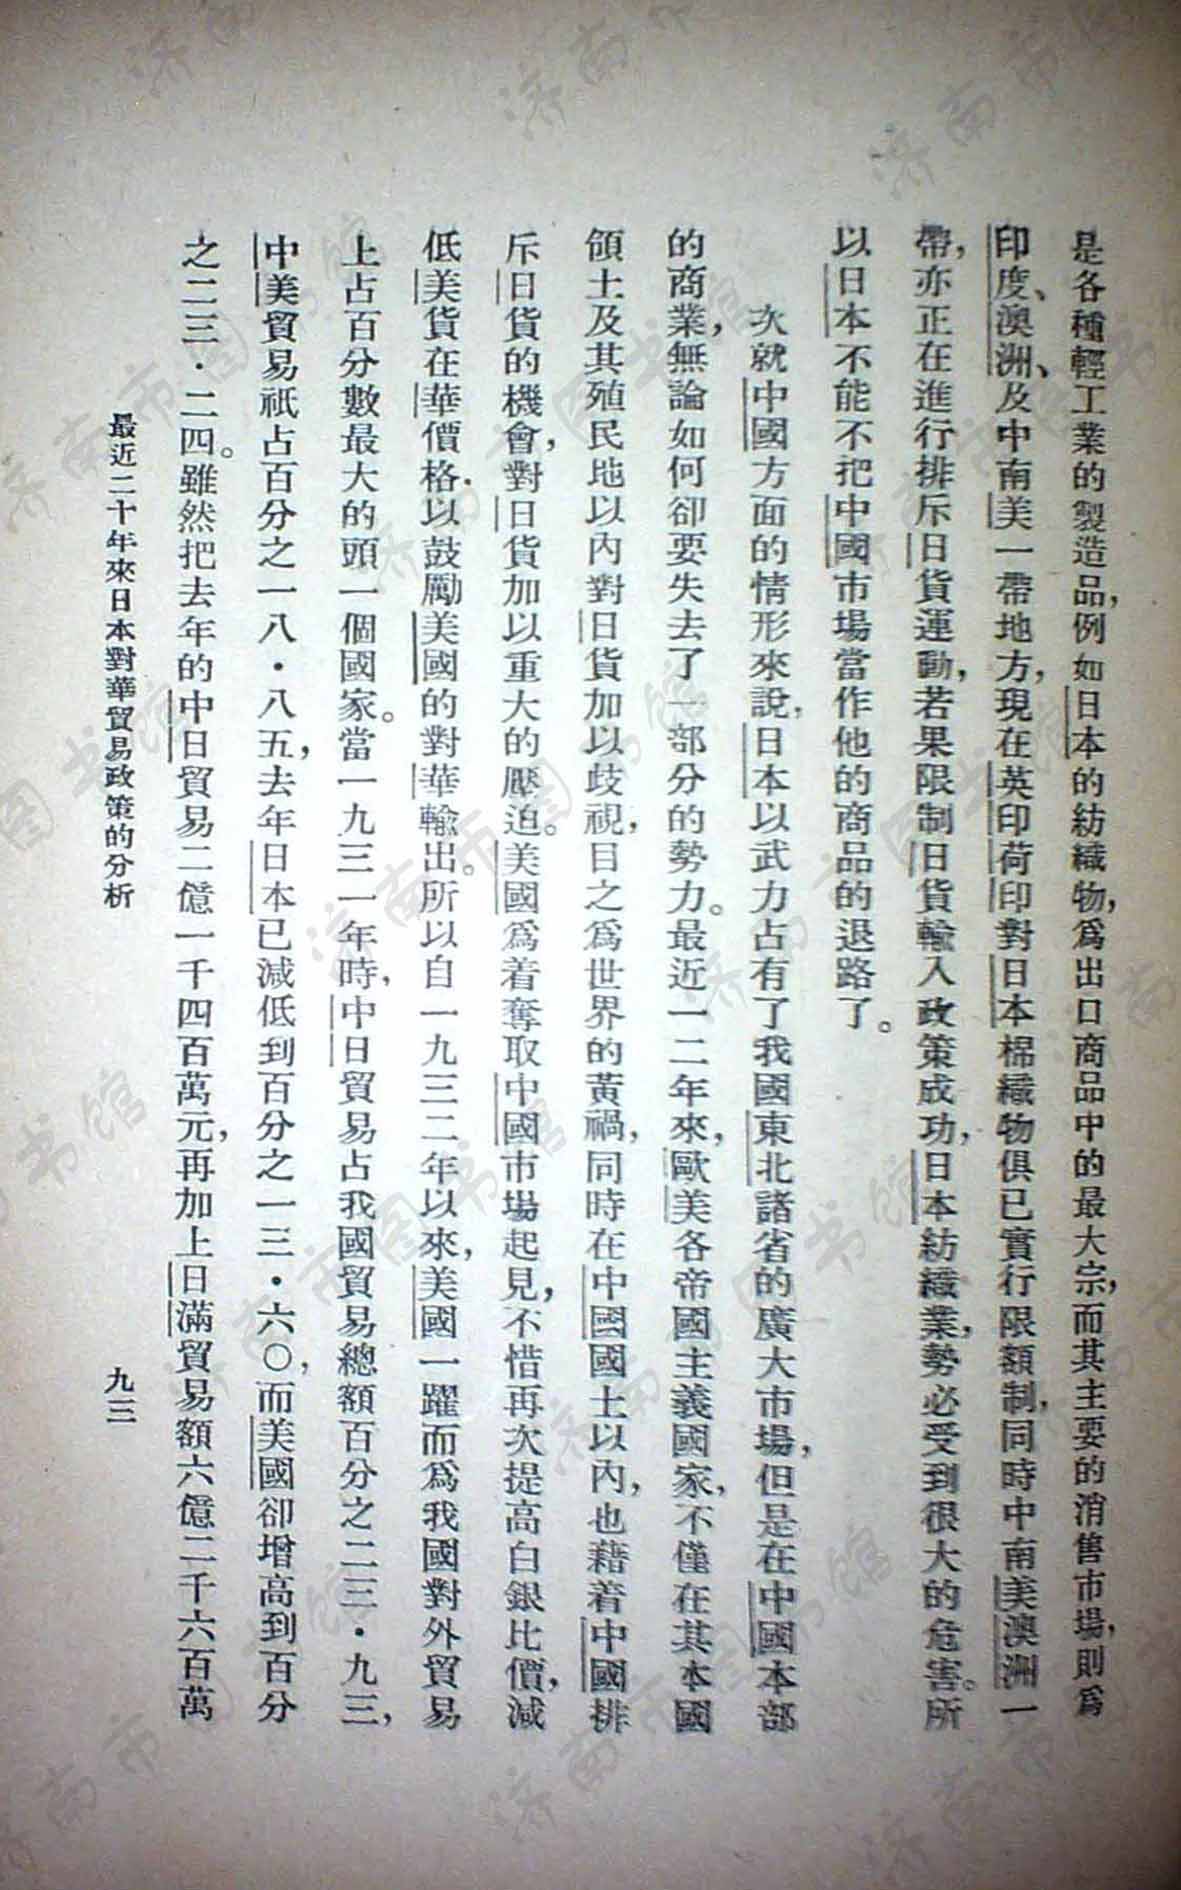 是各種輕工業的製造品，例如日本的紡織物，爲出口商品中的最大宗，而其主要的消售市場，則爲
印度、澳洲、及中南美一帶地方，現在英印荷印對日本棉織物俱已實行限額制，同時中南美澳洲一
帶，亦正在進行排斥日貨運動，若果限制日貨輸入政策成功，日本紡織業，勢必受到很大的危害。所
以日本不能不把中國市場當作他的商品的退路了。
次就中國方面的情形來說，日本以武力占有了我國東北諸省的廣大市場，但是在中國本部
的商業，無論如何卻要失去了一部分的勢力。最近一二年來，歐美各帝國主義國家，不僅在其本國
領土及其殖民地以內對日貨加以歧視，目之爲世界的黃禍，同時在中國國土以內，也藉着中國排
斥日貨的機會，對日貨加以重大的壓迫。美國爲着奪取中國市場起見，不惜再次提高白銀比價，減
低美貨在華價格，以鼓勵美國的對華輸出。所以自一九三二年以來，美國一躍而爲我國對外貿易
上占百分數最大的頭一個國家。當一九三一年時，中日貿易占我國貿易總額百分之二三・九三，
中美貿易祇占百分之一八・八五，去年日本已減低到百分之一三・六〇，而美國卻增高到百分
之二三・二四。雖然把去年的中日貿易二億一千四百萬元，再加上日滿貿易額六億二千六百萬
最近二十年來日本對華貿易政策的分析
九三
济南市图书馆